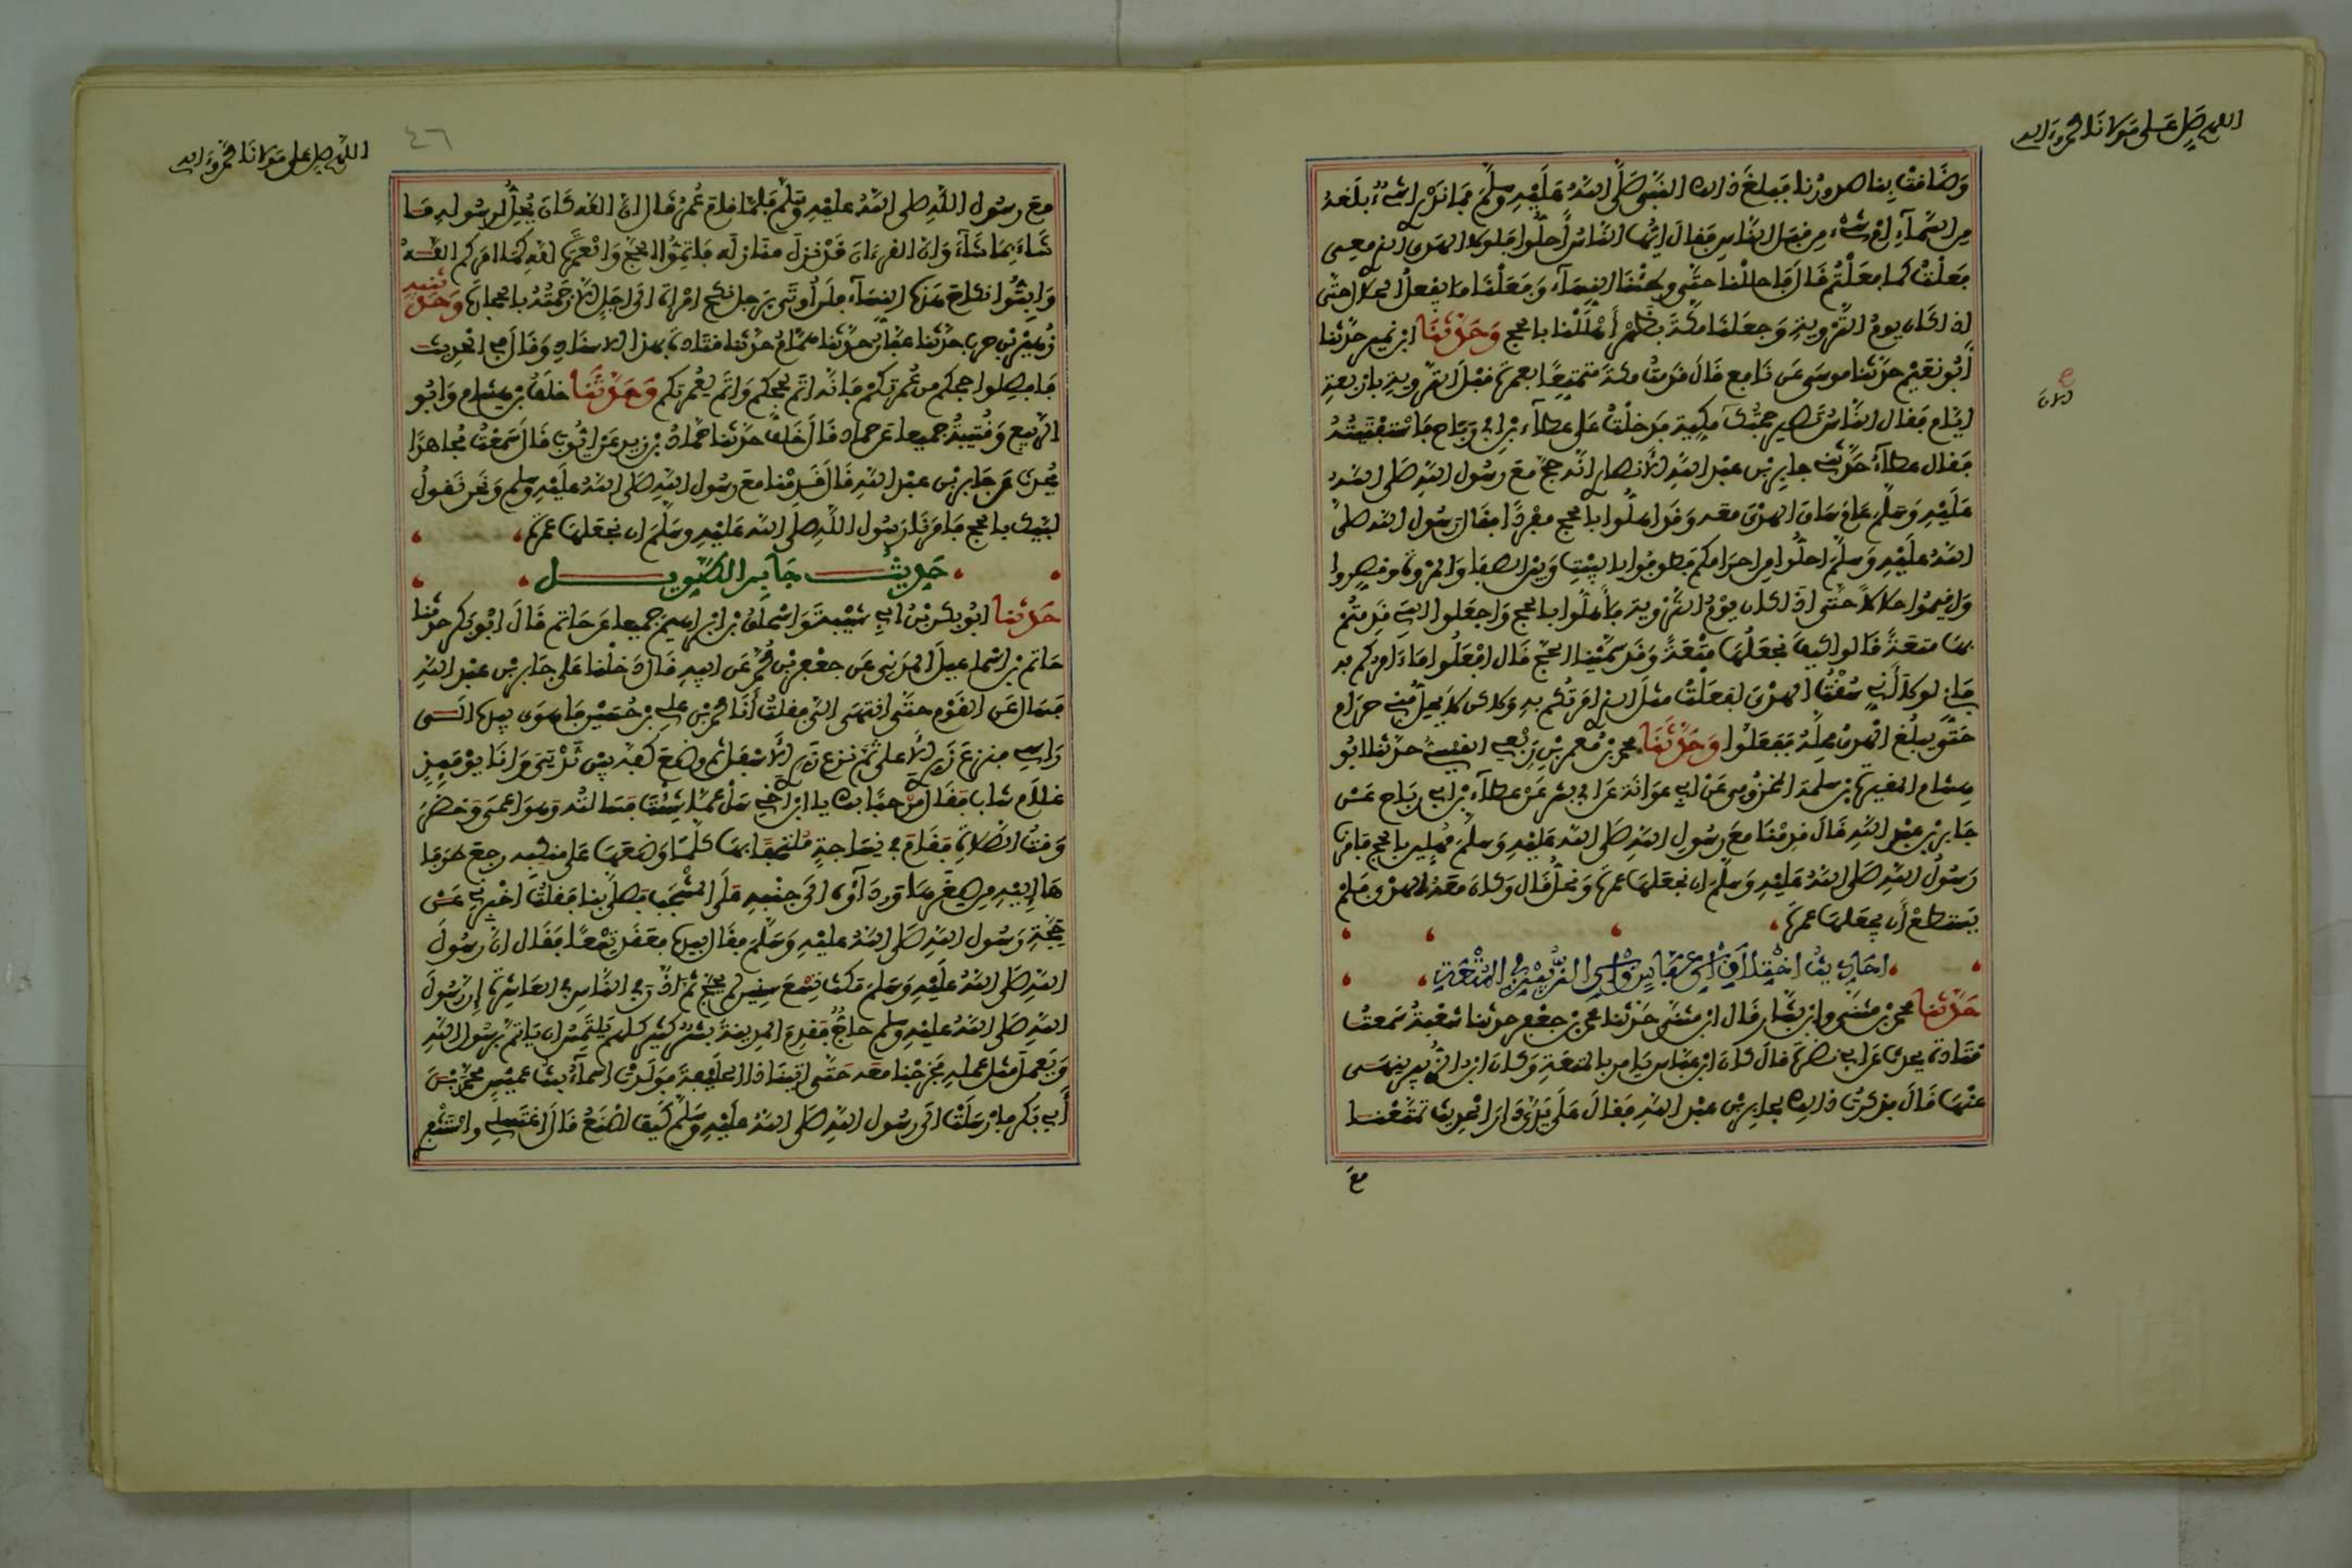 اللهم صل على مولانا محمد وءاله
وَضَافَتْ بِهِ صدورنا فبلغ ذلك النبي صَلَّى اللهُ عَلَيْهِ وسلم فما ندري اشيء بلغه
من السماء ام شيء من قبل الناس فقال ايها الناس احلوا فلولا الهدي الذي معي
فعلت كما فعلتم قال فاحللنا حتى وطئنا النساء وفعلنا ما يفعل الحلال حتى
اذا كان يوم التروية وجعلنا مكة بظهر أهللنا بالحج وَحَدَّثَنَا ابن نمير حدثنا
أبو نعيم حدثنا موسى عن نافع قال قدمت مكة متمتعا بعمرة قبل التروية باربعة
ايام فقال الناس تصير حجتك مكية فدخلت على عطاء بن ابي رباح فاستفتيته
فقال عطاء حدثني جابر بن عبد الله الأنصاري انه حج مع رسول الله صلى الله
عليه وسلم عام ساق الهدي معه وقد اهلوا بالحج مفردا فقال رسول الله صلى
الله عليه وسلم احلوا من احرامكم فطوفوا بالبيت وبين الصفا والمروة وقصروا
واقيموا حلالا حتى اذا كان يوم التروية فأهلوا بالحج واجعلوا التي قدمتم
بها متعة قالوا كيف نجعلها متعة وقد سمينا الحج قال افعلوا ما ءامركم به
فإني لولا أني سقت الهدي لفعلت مثل الذي امرتكم به ولكن لا يحل مني حرام
حتى يبلغ الهدي محله ففعلوا وَحَدَّثَنَا محمد بن معمر بن ربعي القيسي حدثنا ابو
هشام المغيرة بن سلمة المخزومي عن ابي عوانة عن ابي بشر عن عطاء بن ابي رباح عن
جابر بن عبد الله قال قدمنا مع رسول الله صلى الله عليه وسلم مهلين بالحج فامرنا
رسول الله صلى الله عليه وسلم ان نجعلها عمرة ونحل قال وكان معه الهدي فلم
يستطع أن يجعلها عمرة
احاديث اختلاف ابن عباس وابن الزبير في المتعة
حَدَّثَنَا محمد بن مثنى وابن بشار قال ابن مثنى حدثنا محمد بن جعفر حدثنا شعبة سمعت
قتادة يحدث عن ابي نضرة قال كان ابن عباس يامر بالمتعة وكان ابن الزبير ينهى
عنها قال فذكرت ذلك لجابر بن عبد الله فقال على يدي دار الحديث تمتعنا
مع
اللهم صل على مولانا محمد وءاله
٤٦
مع رسول الله صلى الله عليه وسلم فلما قام عمر قال ان الله كان يحل لرسوله ما
شاء بما شاء وان القرءان قد نزل منازله فأتموا الحج والعمرة لله كما امركم الله
وابتوا نكاح هذه النساء فلن اوتى برجل نكح امراة الى اجل الا رجمته بالحجارة وَحَدَّثَنِيهِ
زهير بن حرب حدثنا عفان حدثنا همام حدثنا قتادة بهذا الاسناد وقال في الحديث
فافصلوا حجكم من عمرتكم فانه اتم لحجكم واتم لعمرتكم وَحَدَّثَنَا خلف بن هشام وابو
الربيع وقتيبة جميعا عن حماد قال خلف حدثنا حماد بن زيد عن ايوب قال سمعت مجاهدا
يحدث عن جابر بن عبد الله قال قدمنا مع رسول الله صلى الله عليه وسلم ونحن نقول
لبيك بالحج فامرنا رسول الله صلى الله عليه وسلم ان نجعلها عمرة
حديث جابر الطويل
حَدَّثَنَا ابو بكر بن ابي شيبة واسحاق بن ابراهيم جميعا عن حاتم قال ابو بكر حدثنا
حاتم بن اسماعيل المدني عن جعفر بن محمد عن ابيه قال دخلنا على جابر بن عبد الله
فسال عن القوم حتى انتهى الي فقلت أنا محمد بن علي بن حسين فاهوى بيده الى
راسي فنزع زري الأعلى ثم نزع زري الأسفل ثم وضع كفه بين ثديي وانا يومئذ
غلام شاب فقال مرحبا بك يا ابن اخي سل عما شئت فسالته وهو اعمى وحضر
وقت الصلاة فقام في نساجة ملتحفا بها كلما وضعها على منكبه رجع طرفا
ها إليه من صغرها ورداؤه الى جنبه على المشجب فصلى بنا فقلت اخبرني عن
حجة رسول الله صلى الله عليه وسلم فقال بيده فعقد تسعا فقال ان رسول
الله صلى الله عليه وسلم مكث تسع سنين لم يحج ثم اذن في الناس في العاشرة إن رسول
الله صلى الله عليه وسلم حاج فقدم المدينة بشر كثير كلهم يلتمس ان ياتم برسول الله
ويعمل مثل عمله فخرجنا معه حتى اتينا ذا الحليفة فولدت اسماء بنت عميس محمد بن
أبي بكر فارسلت الى رسول الله صلى الله عليه وسلم كيف اصنع قال اغتسلي واستثفر